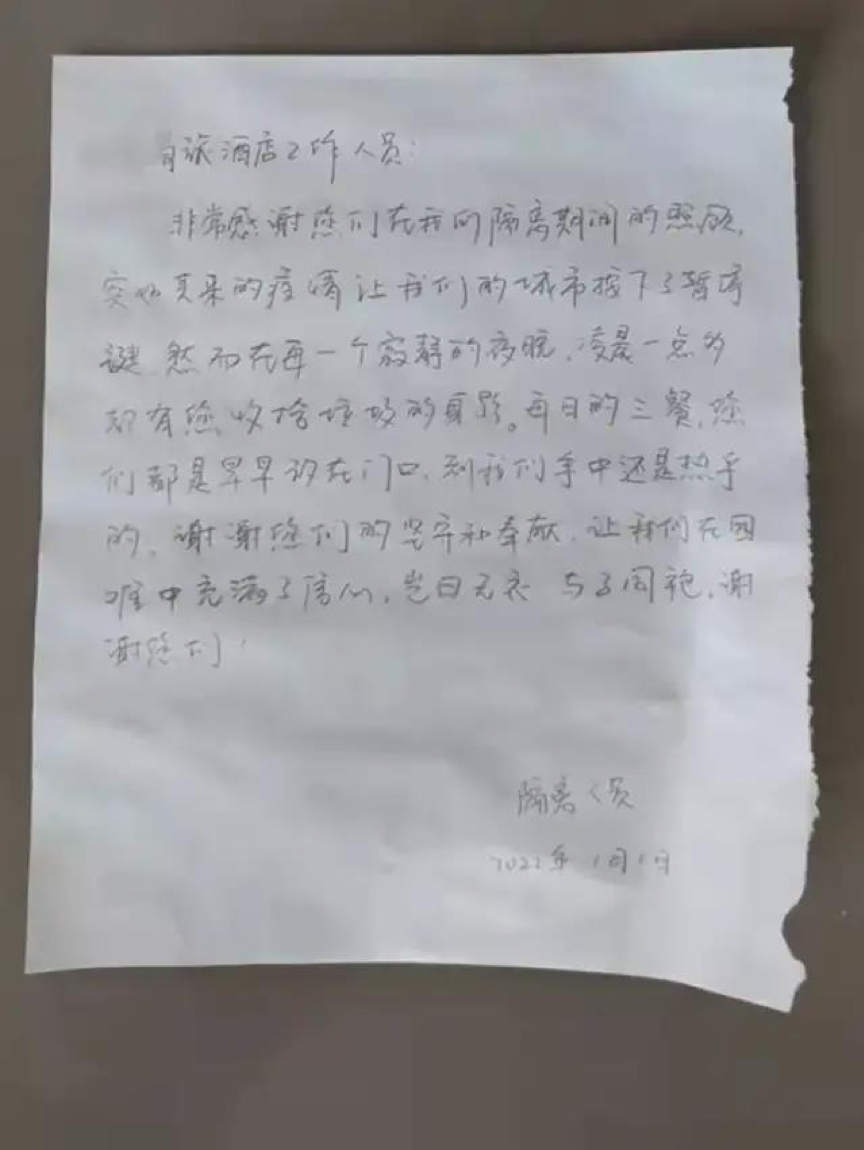 派酒店工作人员:
非常感谢您们在我的隔离期间的照顾,
突如其来的疫情让我们的城市按下了暂停
键 然而在每一个寂静的夜晚,凌晨一点多
都有您收拾垃圾的身影。每日的三餐,您
们都是早早放在门口,到我们手中还是热乎
的,谢谢您们的坚守和奉献,让我们在困
难中充满了信心,岂曰无衣 与子同袍,谢
谢您们!
隔离人员
2022年1月1日